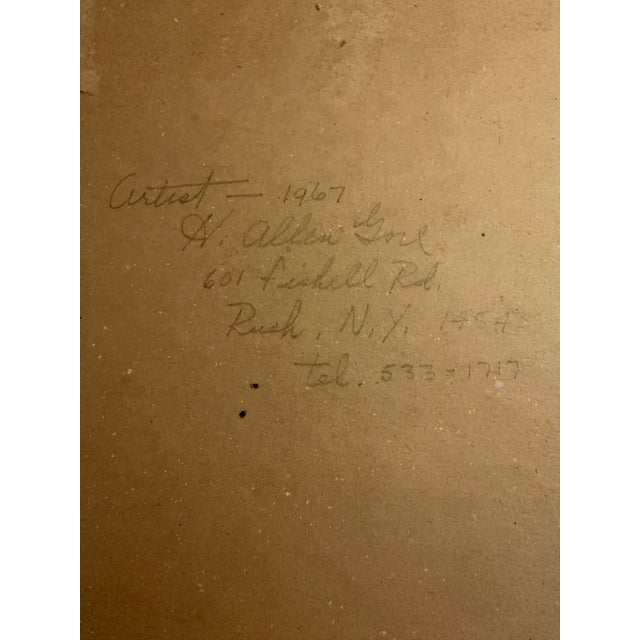 Artist — 1967
H. Allen Gore
601 Fishell Rd.
Rush, N.Y. 1454
tel. 533-1717